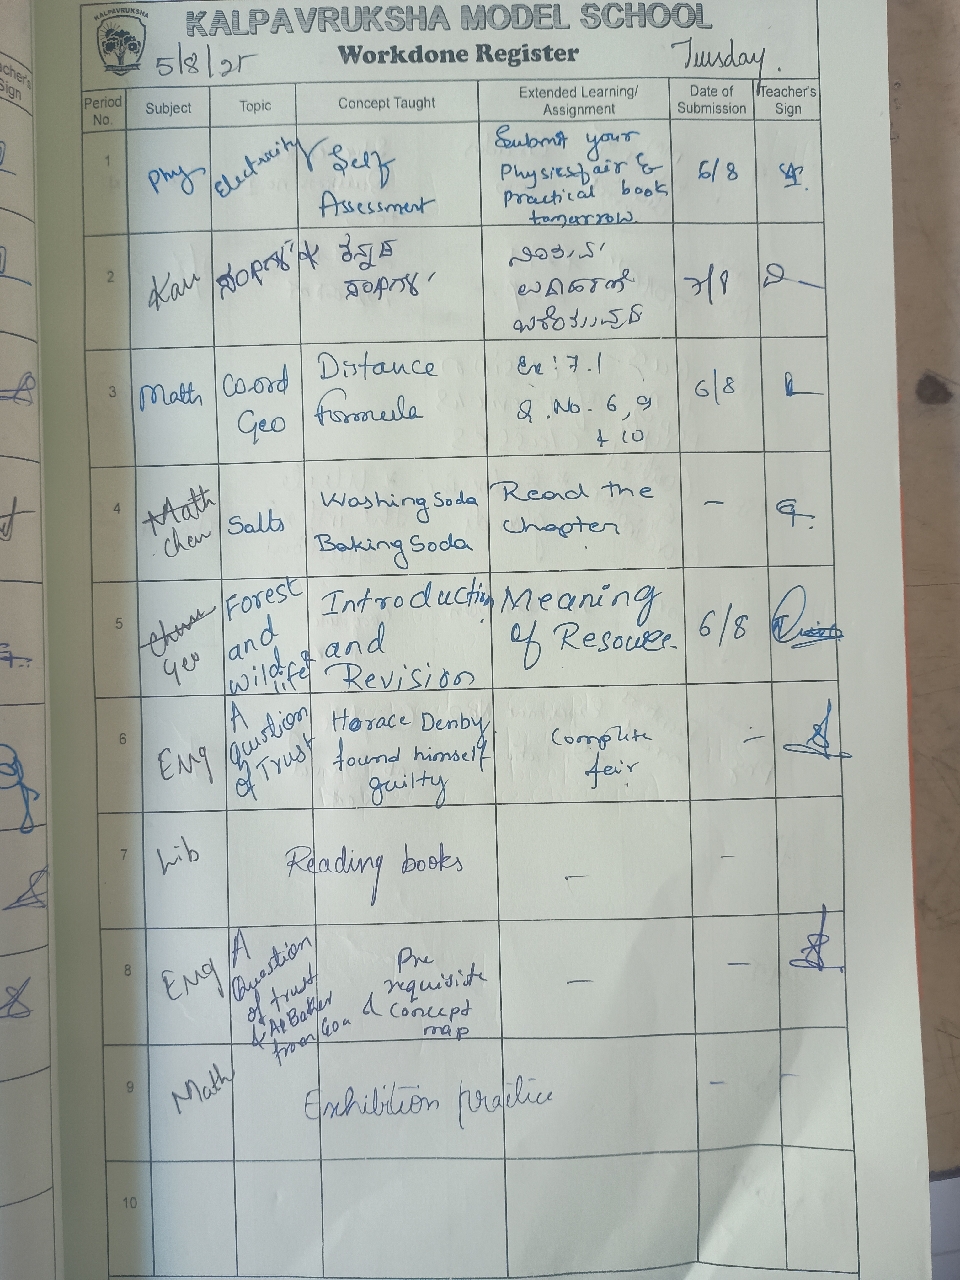 KALPAVRUKSHA
KALPAVRUKSHA MODEL SCHOOL
5/8/25 Workdone Register Tuesday.
Period No. Subject Topic Concept Taught Extended Learning/ Assignment Date of Submission Teacher's Sign
1 Phy Electricity Self Assessment Submit your Physics fair & Practical book tomorrow 6/8
2 Kan ಕನ್ನಡ 7/8
3 Math Coord Geo Distance formula Ex: 7.1 Q. No. 6, 9 & 10 6/8
4 Math Chem Salts Washing Soda Baking Soda Read the Chapter. -
5 Chem Geo Forest and wild life Introduction and Revision Meaning of Resource. 6/8
6 Eng A question of Trust Horace Denby found himself guilty Complete feir -
7 Lib Reading books - -
8 Eng A Question of trust & A Baker from Goa Pre requisite & Concept map - -
9 Math Exhibition practice - -
10